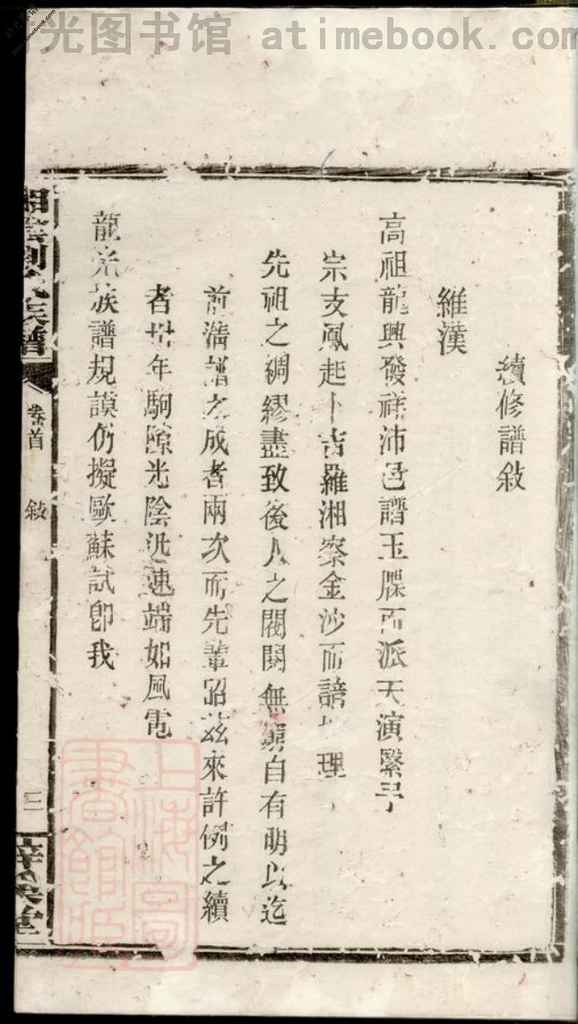 光图书馆 atimebook.com
續修譜敍
維漢
高祖龍興發祥沛邑譜玉牒而派天演緊予
宗支鳳起卜吉羅湘察金沙而諳地理
先祖之綢繆盡致後人之閥閱無窮自有明以迄
前清譜之成者兩次而先輩昭茲來許例之續
者卅年駒隙光陰迅速端如風電
龍光族譜規謨仍擬歐蘇試卽我
湘陰劉氏族譜
卷首
敍
三
上海圖書館藏